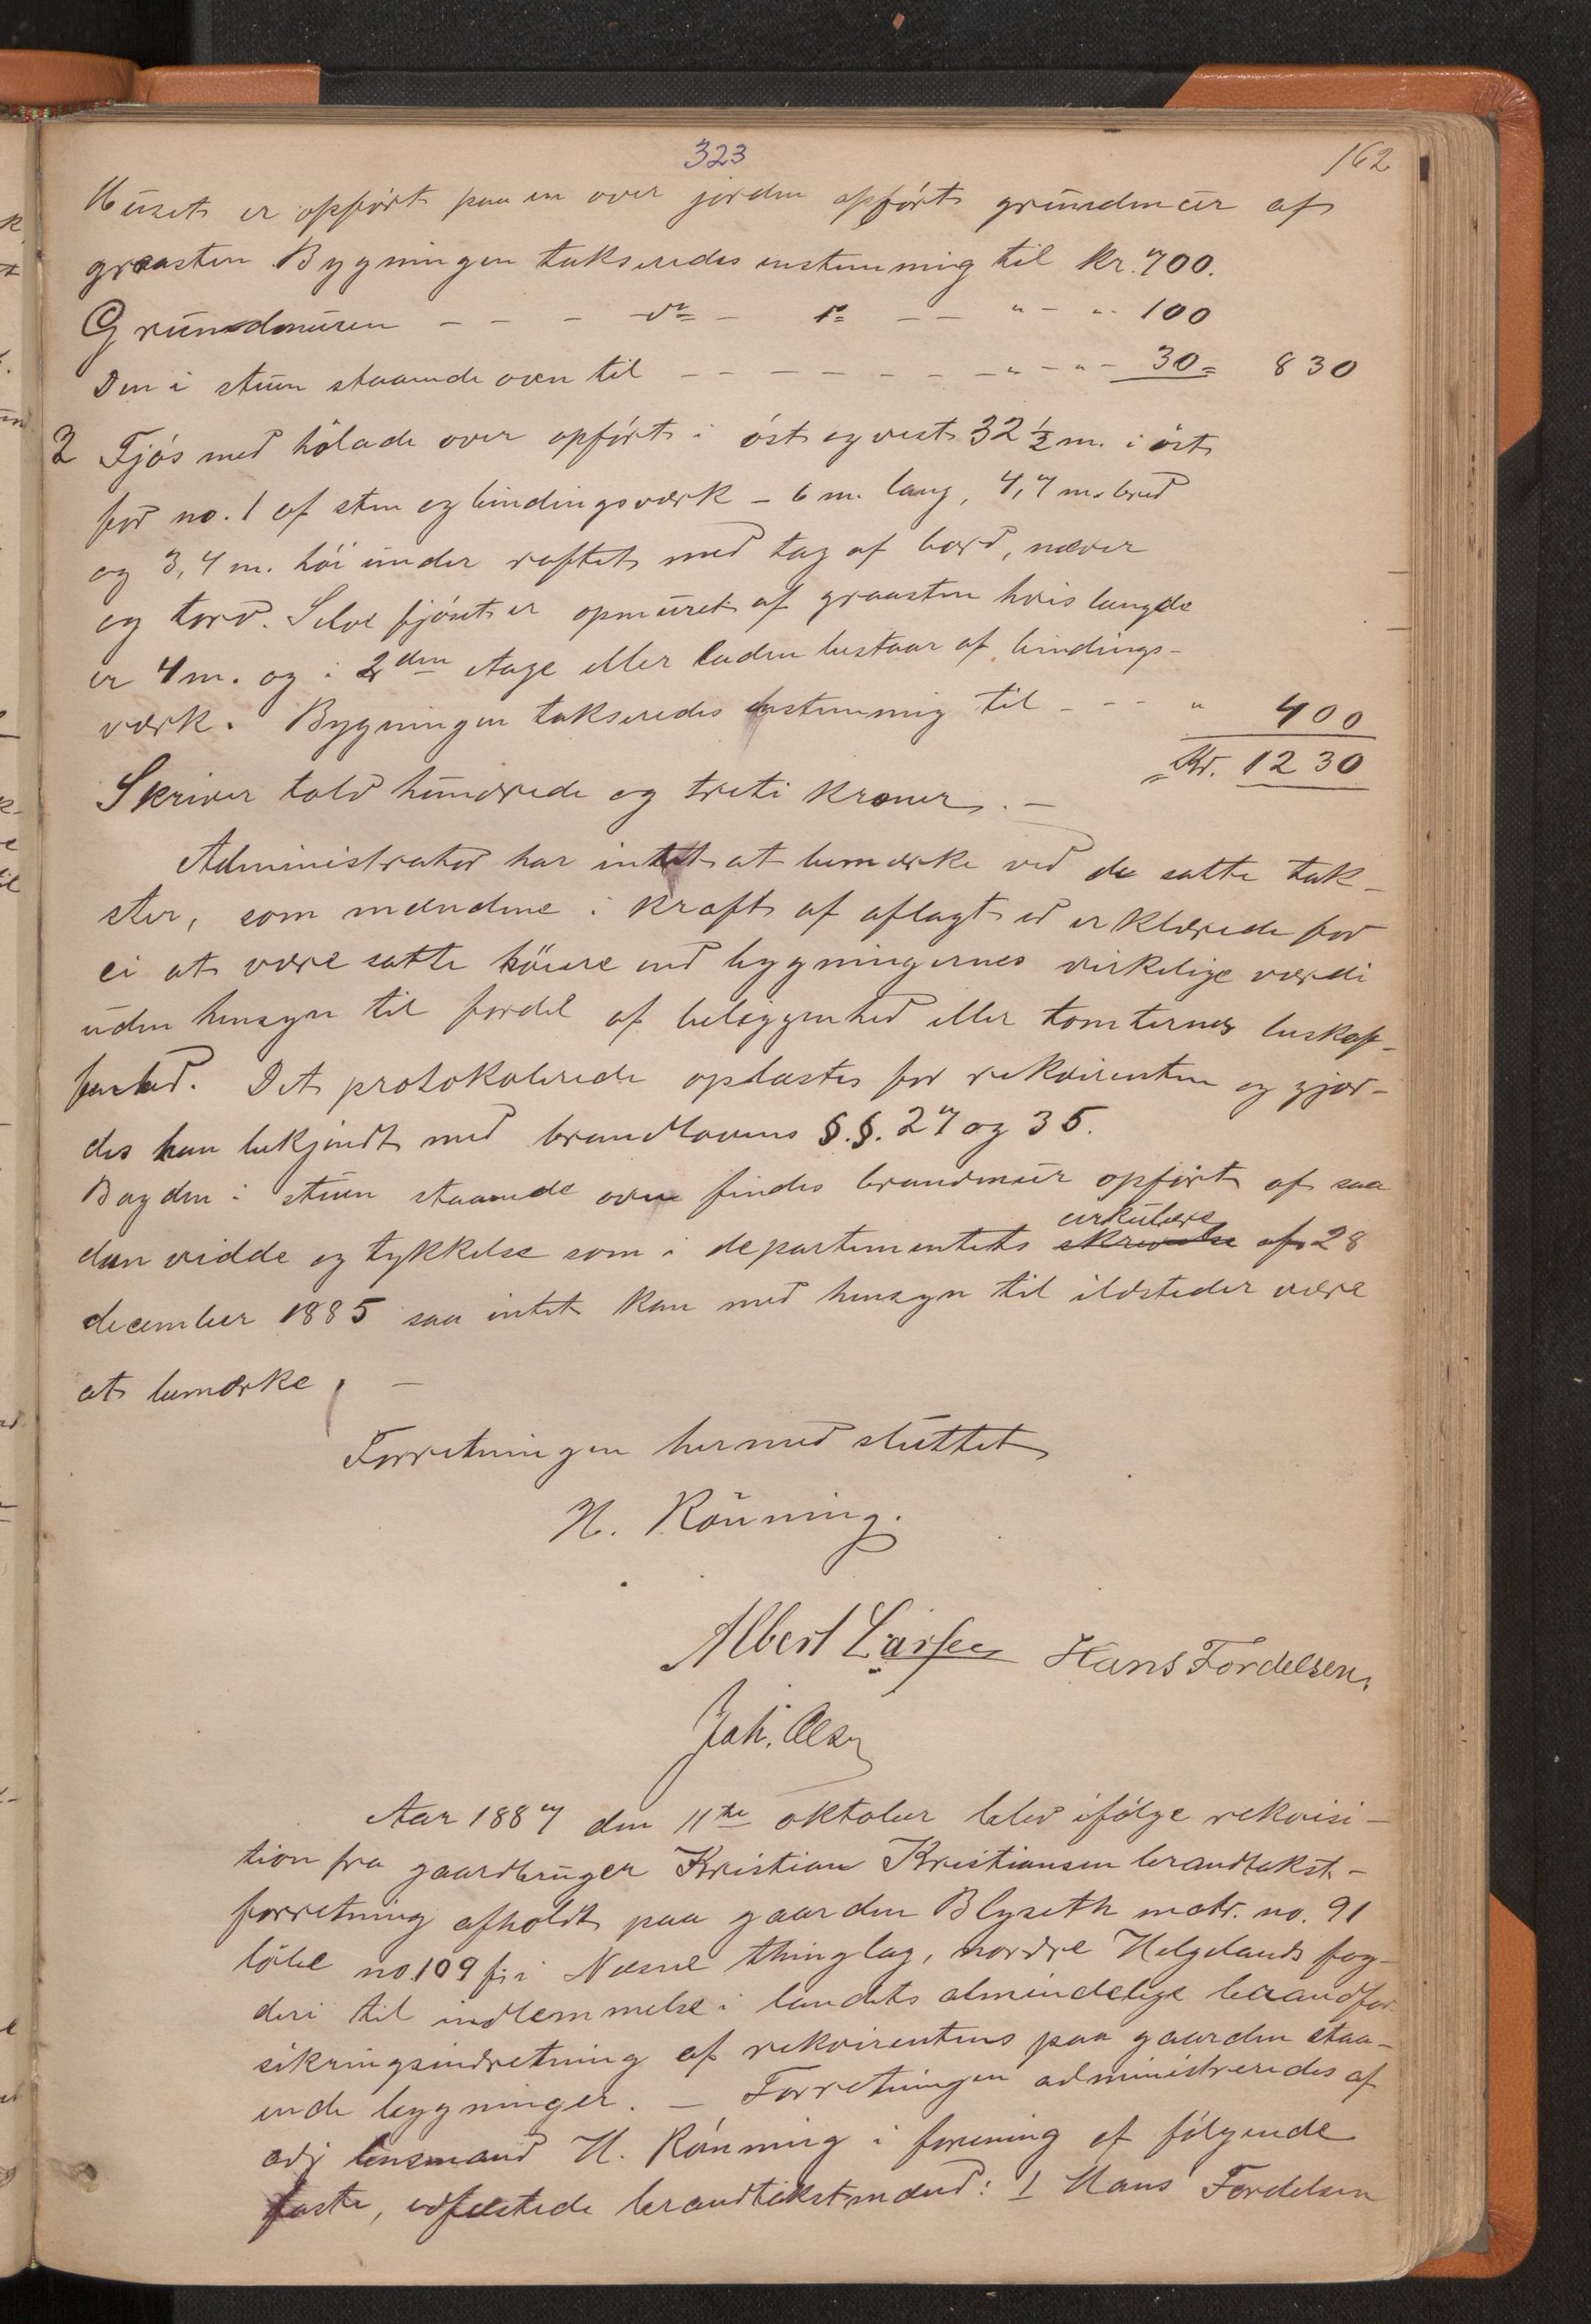 323
162
Huset er opført paa en over jorden opført grundmur af
graasten Bygningen takseredes enstemmig til kr. 700.
Grundmuren - - - do - do - - " - " 100
Den i stuen staaende oven til - - - - - - - " - " - 30 = 830
2 Fjøs med hölade over opført i øst og vest 32 ½ m. i øst
for no. 1 af sten og bindingsværk - 6 m. lang, 4,7 m. bred
og 3,4 m. høi under raftet med tag af bord, næver
og torv. Selve fjøset er opmuret af graasten hvis længde
er 4 m. og i 2den etage eller laden bestaar af bindings-
værk. Bygningen takseredes enstemmig til - - - " 400
Kr. 1230
Skriver tolv hundrede og treti kroner. -
Administrator har intet at bemærke ved de satte tak-
ster, som mændene i kraft af aflagt ed erklærede for
ei at være satte høiere end bygningernes virkelige værdi
uden hensyn til fordel af beliggenhed eller tomternes beskaf-
fenhed. Det protokolerede oplæstes for rekvirenten og gjor-
des han bekjendt med brandlovens §.§. 27 og 35.
Bag den i stuen staaende oven findes brandmur opført af saa
dan vidde og tykkelse som i departementets skrivelse cirkulære af 28
december 1885 saa intet kan med hensyn til ildsteder være
at bemærke. -
Forretningen hermed sluttet
H. Rönning.
Albert Larsen Hans Fordelsen
Joh. Olsen
Aar 1887 den 11te oktober blev ifølge rekvisi-
tion fra gaardbruger Kristian Kristiansen brandtakst-
forretning afholdt paa gaarden Blyseth matr. no. 91
löbe no. 109 f; i Næsne thinglag, nordre Helgelands fog-
deri til indlemmelse i landets almindelige brandfor-
sikringsindretning af rekvirentens paa gaarden staa-
ende bygninger. - Forretningen administreredes af
adj lensmand H. Rönning i forening af følgende
faste, edfæstede brandtakstmænd: 1 Hans Fordelsen